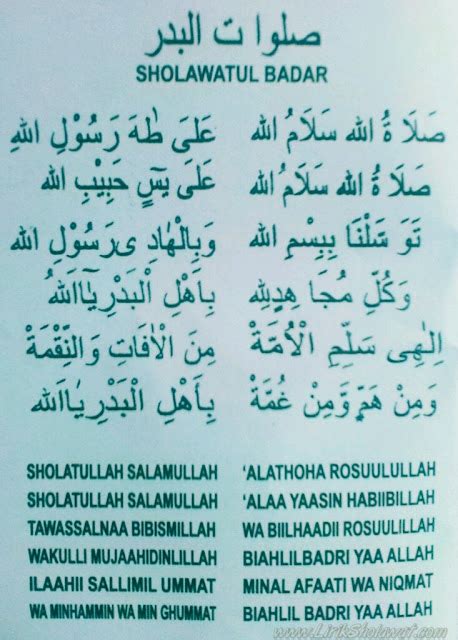 صلوا ت البدر
SHOLAWATUL BADAR
صَلَا ةُ الله سَلَامُ الله عَلَى طٰهَ رَسُوْلِ اللهِ
صَلَا ةُ الله سَلَامُ الله عَلَى يٰسٓ حَبِيْبِ الله
تَوَ سَّلْنَا بِبِسْمِ الله وَبِالْهَادِ ى رَسُوْلِ الله
وَكُلِّ مُجَا هِدٍ لِلهِ بِاَهْلِ الْبَدْرِ يَآ اَللهُ
اِلٰهِى سَلِّمِ الْاُمَّةْ مِنَ الْاٰفَاتِ وَالنِّقْمَةْ
وَمِنْ هَمٍّ وَّمِنْ غُمَّةْ بِأَهْلِ الْبَدْرِ يَا اَلله
SHOLATULLAH SALAMULLAH 'ALATHOHA ROSUULULLAH
SHOLATULLAH SALAMULLAH 'ALAA YAASIN HABIIBILLAH
TAWASSALNAA BIBISMILLAH WA BIILHAADII ROSUULILLAH
WAKULLI MUJAAHIDINLILLAH BIAHLILBADRI YAA ALLAH
ILAAHII SALLIMIL UMMAT MINAL AFAATI WA NIQMAT
WA MINHAMMIN WA MIN GHUMMAT BIAHLIL BADRI YAA ALLAH
www.LirikSholawat.com